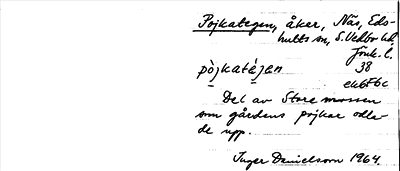 Pojkategen, åker, Näs, Eds-
hults sn, S. Vedbo hd.
Jönk. l.
pòjkatéjen 38
Del av Store mossen
som gårdens pojkar odla-
de upp.
Inger Danielsson 1964.